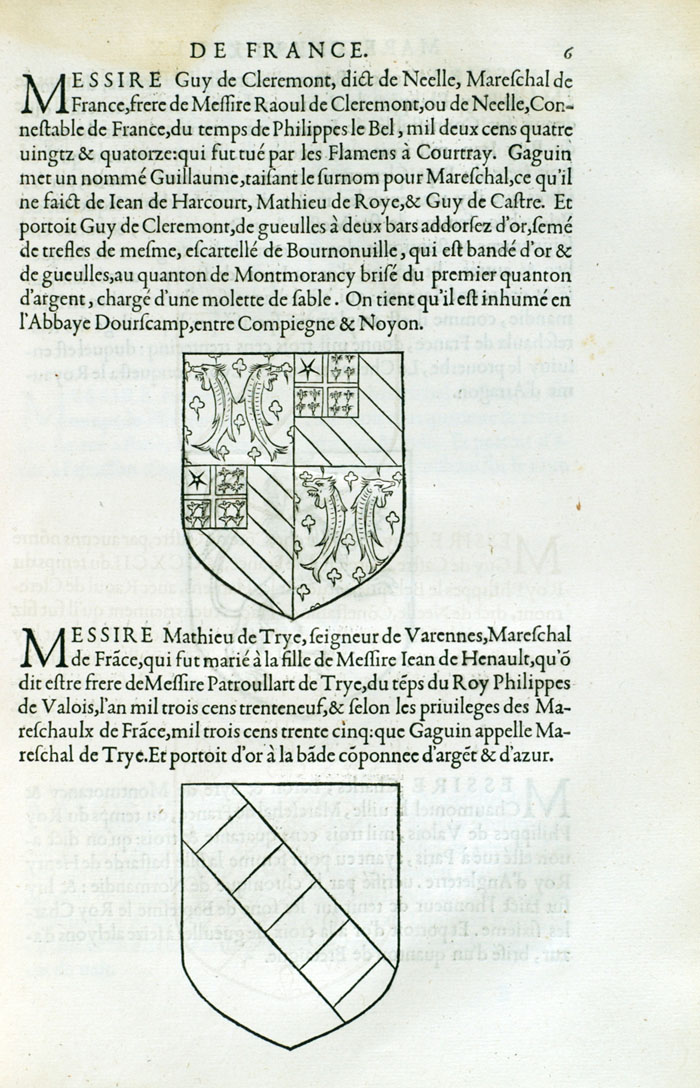 DE FRANCE. 6
MESSIRE Guy de Cleremont, dict de Neelle, Mareſchal de
France, frere de Meſſire Raoul de Cleremont, ou de Neelle, Con-
neſtable de France, du temps de Philippes le Bel, mil deux cens quatre
uingtz & quatorze: qui fut tué par les Flamens à Courtray. Gaguin
met un nommé Guillaume, taiſant le ſurnom pour Mareſchal, ce qu'il
ne faict de Iean de Harcourt, Mathieu de Roye, & Guy de Caſtre. Et
portoit Guy de Cleremont, de gueulles à deux bars addorſez d'or, ſemé
de trefles de meſme, eſcartellé de Bournonuille, qui eſt bandé d'or &
de gueulles, au quanton de Montmorancy briſé du premier quanton
d'argent, chargé d'une molette de ſable. On tient qu'il eſt inhumé en
l'Abbaye Dourſcamp, entre Compiegne & Noyon.
MESSIRE Mathieu de Trye, ſeigneur de Varennes, Mareſchal
de Frāce, qui fut marié à la fille de Meſſire Iean de Henault, qu'ō
dit eſtre frere de Meſſire Patroullart de Trye, du tēps du Roy Philippes
de Valois, l'an mil trois cens trenteneuf, & ſelon les priuileges des Ma-
reſchaulx de Frāce, mil trois cens trente cinq: que Gaguin appelle Ma-
reſchal de Trye. Et portoit d'or à la bāde cōponnee d'argēt & d'azur.